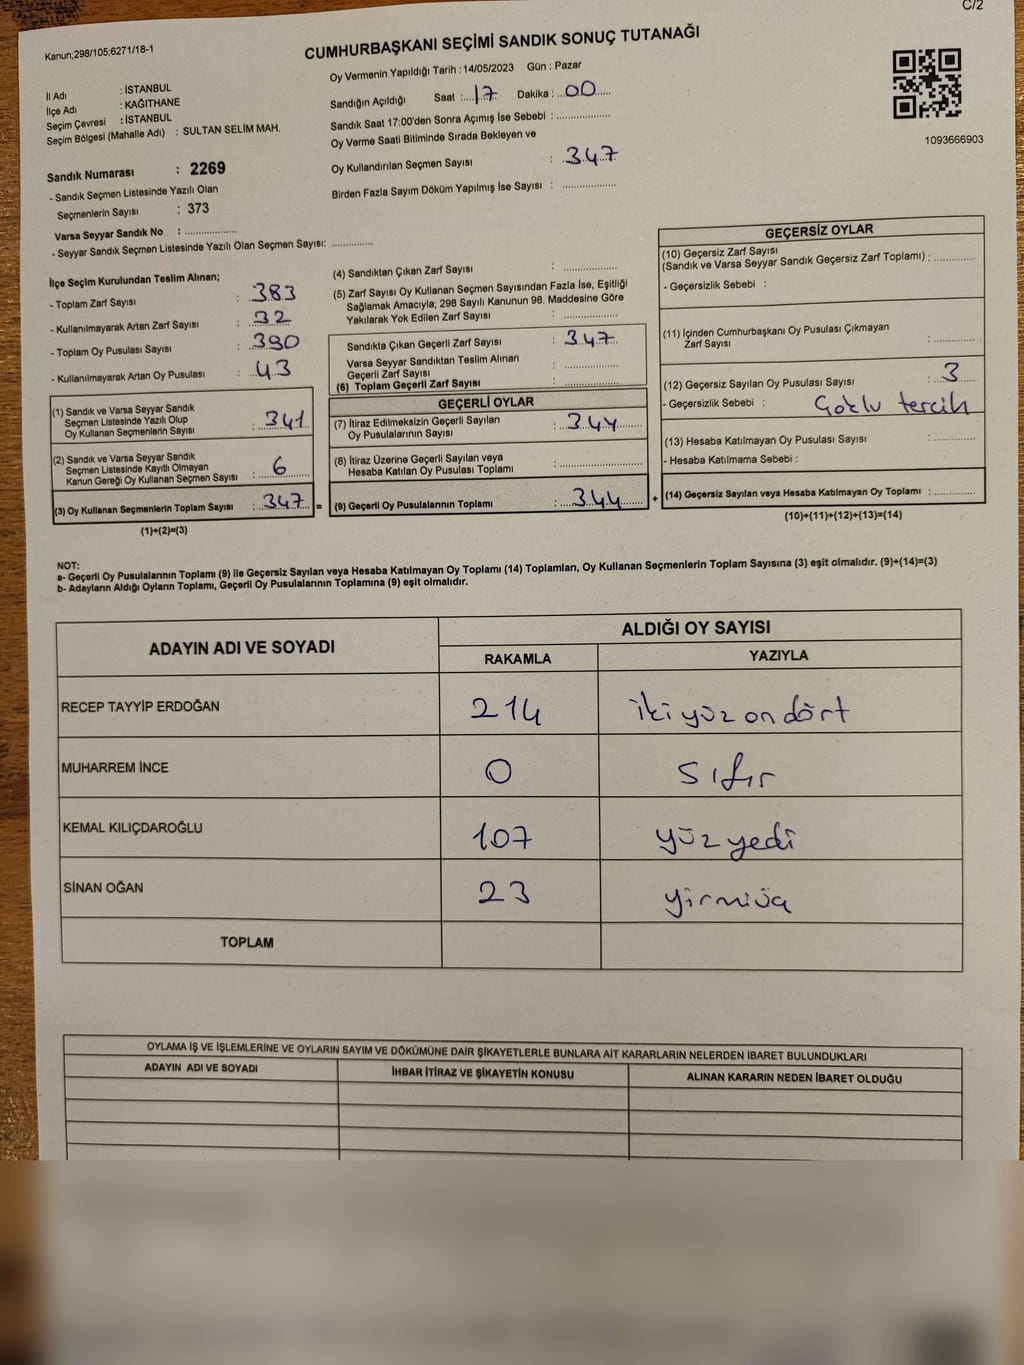 C/2
Kanun;298/105;6271/18-1
CUMHURBAŞKANI SEÇİMİ SANDIK SONUÇ TUTANAĞI
İl Adı : İSTANBUL
İlçe Adı : KAĞITHANE
Seçim Çevresi : İSTANBUL
Seçim Bölgesi (Mahalle Adı) : SULTAN SELİM MAH.
Sandık Numarası : 2269
- Sandık Seçmen Listesinde Yazılı Olan
Seçmenlerin Sayısı : 373
Varsa Seyyar Sandık No : ..................
- Seyyar Sandık Seçmen Listesinde Yazılı Olan Seçmen Sayısı: ..............
Oy Vermenin Yapıldığı Tarih : 14/05/2023 Gün : Pazar
Sandığın Açıldığı Saat : 17 Dakika : 00
Sandık Saat 17:00'den Sonra Açımış İse Sebebi : ..................
Oy Verme Saati Bitiminde Sırada Bekleyen ve
Oy Kullandırılan Seçmen Sayısı : 347
Birden Fazla Sayım Döküm Yapılmış İse Sayısı : ..................
1093666903
İlçe Seçim Kurulundan Teslim Alınan;
- Toplam Zarf Sayısı : 383
- Kullanılmayarak Artan Zarf Sayısı : 32
- Toplam Oy Pusulası Sayısı : 390
- Kullanılmayarak Artan Oy Pusulası : 43
(1) Sandık ve Varsa Seyyar Sandık
Seçmen Listesinde Yazılı Olup
Oy Kullanan Seçmenlerin Sayısı : 341
(2) Sandık ve Varsa Seyyar Sandık
Seçmen Listesinde Kayıtlı Olmayan
Kanun Gereği Oy Kullanan Seçmen Sayısı : 6
(3) Oy Kullanan Seçmenlerin Toplam Sayısı : 347 =
(1)+(2)=(3)
(4) Sandıktan Çıkan Zarf Sayısı : ..................
(5) Zarf Sayısı Oy Kullanan Seçmen Sayısından Fazla İse, Eşitliği
Sağlamak Amacıyla; 298 Sayılı Kanunun 98. Maddesine Göre
Yakılarak Yok Edilen Zarf Sayısı : ..................
Sandıkta Çıkan Geçerli Zarf Sayısı : 347
Varsa Seyyar Sandıktan Teslim Alınan
Geçerli Zarf Sayısı : ..................
(6) Toplam Geçerli Zarf Sayısı : ..................
GEÇERLİ OYLAR
(7) İtiraz Edilmeksizin Geçerli Sayılan
Oy Pusulalarının Sayısı : 344
(8) İtiraz Üzerine Geçerli Sayılan veya
Hesaba Katılan Oy Pusulası Toplamı : ..................
(9) Geçerli Oy Pusulalarının Toplamı : 344 +
GEÇERSİZ OYLAR
(10) Geçersiz Zarf Sayısı
(Sandık ve Varsa Seyyar Sandık Geçersiz Zarf Toplamı) : ..............
- Geçersizlik Sebebi :
(11) İçinden Cumhurbaşkanı Oy Pusulası Çıkmayan
Zarf Sayısı : ..............
(12) Geçersiz Sayılan Oy Pusulası Sayısı : 3
- Geçersizlik Sebebi : Çoklu tercih
(13) Hesaba Katılmayan Oy Pusulası Sayısı : ..............
- Hesaba Katılmama Sebebi :
(14) Geçersiz Sayılan veya Hesaba Katılmayan Oy Toplamı : ..............
(10)+(11)+(12)+(13)=(14)
NOT:
a- Geçerli Oy Pusulalarının Toplamı (9) ile Geçersiz Sayılan veya Hesaba Katılmayan Oy Toplamı (14) Toplamları, Oy Kullanan Seçmenlerin Toplam Sayısına (3) eşit olmalıdır. (9)+(14)=(3)
b- Adayların Aldığı Oyların Toplamı, Geçerli Oy Pusulalarının Toplamına (9) eşit olmalıdır.
ADAYIN ADI VE SOYADI ALDIĞI OY SAYISI
RAKAMLA YAZIYLA
RECEP TAYYİP ERDOĞAN 214 iki yüz on dört
MUHARREM İNCE 0 sıfır
KEMAL KILIÇDAROĞLU 107 yüz yedi
SİNAN OĞAN 23 yirmiüç
TOPLAM
OYLAMA İŞ VE İŞLEMLERİNE VE OYLARIN SAYIM VE DÖKÜMÜNE DAİR ŞİKAYETLERLE BUNLARA AİT KARARLARIN NELERDEN İBARET BULUNDUKLARI
ADAYIN ADI VE SOYADI İHBAR İTİRAZ VE ŞİKAYETİN KONUSU ALINAN KARARIN NEDEN İBARET OLDUĞU